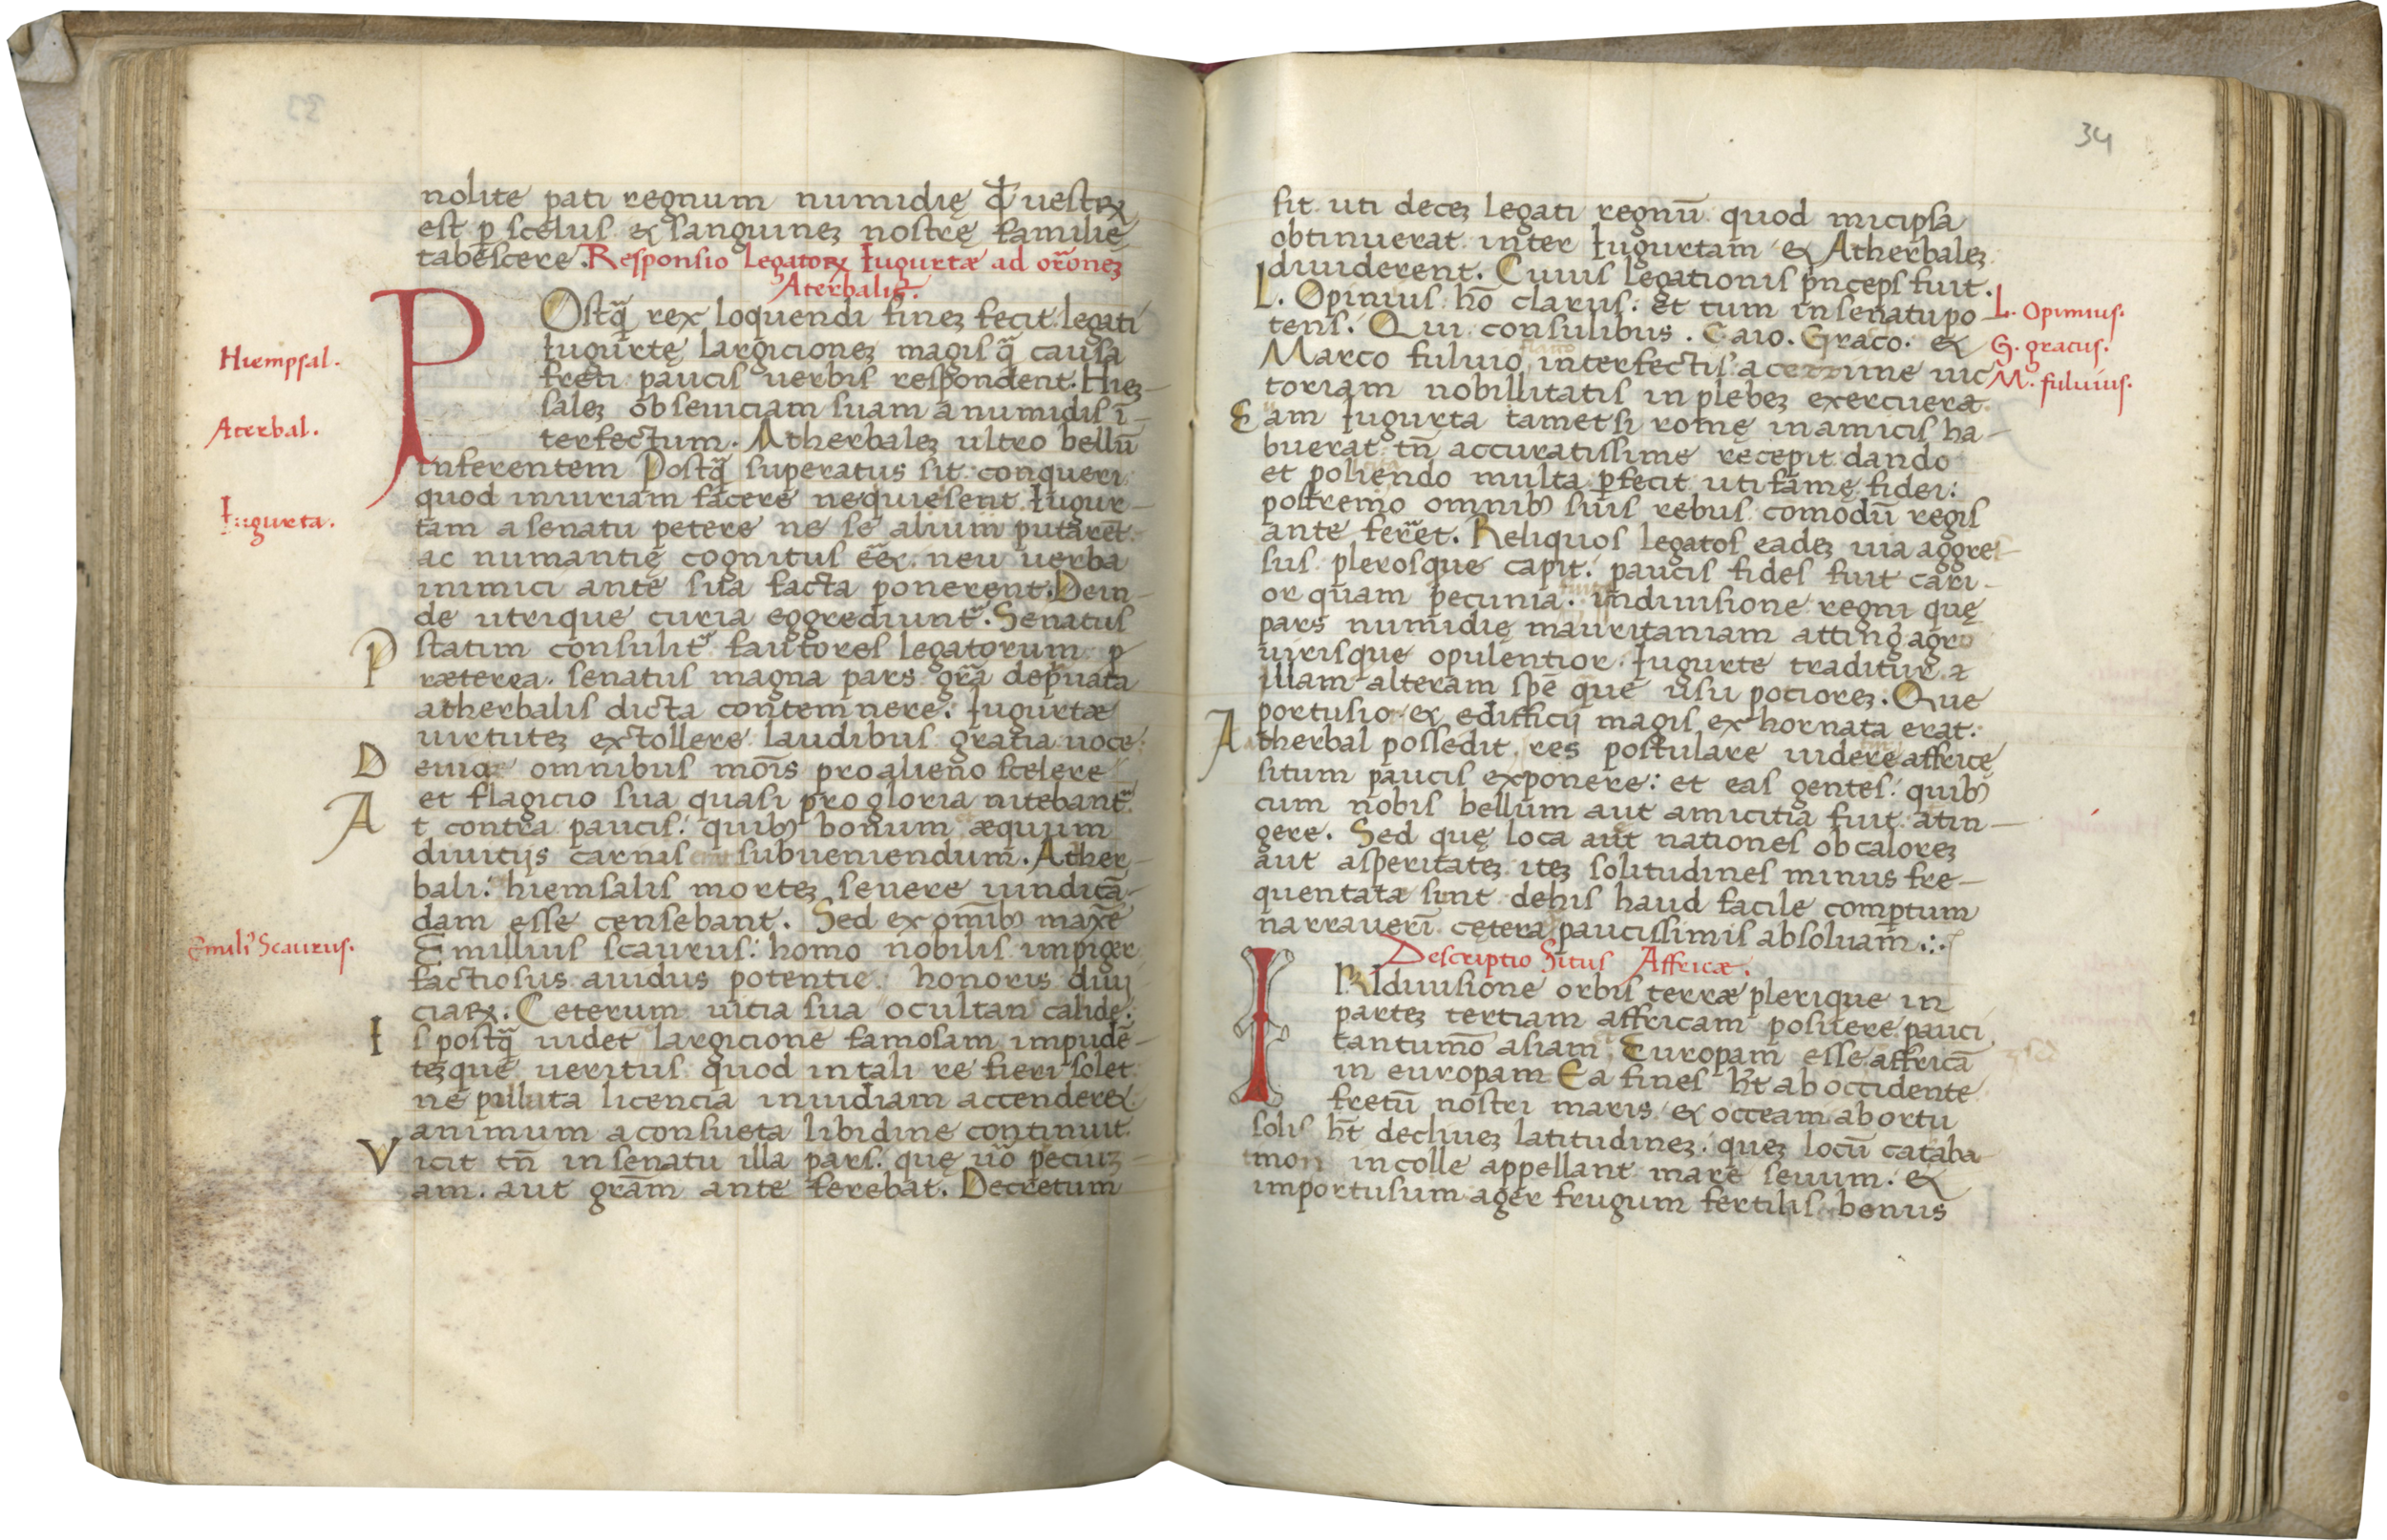 nolite pati regnum numidię qđ uestꝝ
est ꝑ scelus ⁊ sanguineʒ nostrę familię
tabescere. Responsio Legatoꝝ Iugurtæ ad orōneʒ
Aterbalis.
POstq̄ rex loquendi fineʒ fecit legati
Iugurtę largicioneʒ magis q̄ causa
freti paucis uerbis respondent. Hieʒ-
saleʒ ob seuiciam suam a numidis ī-
terfectum. Atherbaleʒ ultro bellū
inferentem Postq̄ superatus sit conqueri
quod iniuriam facere nequiesent Iugur-
tam a senatu petere ne se alium putarēt
ac numantię cognitus eēꝫ neu uerba
inimici ante sua facta ponerent. Dein-
de utrique curia eggrediunt̄. Senatus
statim consulit̄ fautores legatorum p
Præterea senatus magna pars gr̄a depͣuata
atherbalis dicta contemnere: Iugurtæ
uirtuteʒ extollere laudibus gratia uoce
Denioꝫ omnibus mōis pro alieno scelere
et flagicio sua quasi pro gloria nitebant̄
At contra paucis: quibꝫ bonum æquum
diuitijs carnis subueniendum. Ather-
bali: hiemsalis morteʒ seuere uindicā-
dam esse censebant. Sed ex om̄ibꝫ maxē
Emillius scaurus: homo nobilis impiger
factiosus auidus potentie honoris diui
ciaꝝ. Ceterum uitia sua ocultans calide.
Is postq̄ uidet largicione famosam impudē-
teʒque ueritus quod in tali re fieri solet
ne polluta licencia inuidiam accendereꝫ
animum a consueta libidine continuit
Vicit tn̄ in senatu illa pars: que uo̅ peciuʒ
am. aut grām ante ferebat. Decretum
Hiempsal.
Aterbal.
Iugurta.
Emili' Scaurus.
34
sit uti deceʒ legati regnū quod micipsa
obtinuerat inter Iugurtam ⁊ Atherbaleʒ
diuiderent. Cuius legationis pͥnceps fuit.
L. Opinius: hō clarus: et tum in senatu po-
tens. Qui consulibus. Caio. Graco. ⁊
Marco fuluio interfectis acerrime uic
toriam nobillitatis in plebeʒ exercuerat
Eam Iugurta tametsi romę in amicis ha-
buerat tn̄ accuratissime recepit dando
et poliendo multa ꝑfecit uti famę fidei:
postremo omnibꝫ suis rebus comodū regis
ante ferret. Reliquos legatos eadeʒ uia aggres-
sus plerosque capit: paucis fides fuit cari-
or quam pecunia. in diuisione regni quę
pars numidię mauritaniam atting̓ agro
uirisque opulentior Iugurte traditur a
illam alteram spē que usu pocioreʒ. Que
portusior ⁊ edifficij magis exhornata erat.
Atherbal possedit res postulare uidere affricę
situm paucis exponere: et eas gentes: quibꝫ
cum nobis bellum aut amicitia fuit atin-
gere. Sed quę loca aut nationes ob caloreʒ
aut asperitateʒ iteʒ solitudines minus fre-
quentatæ sint dehis haud facile comꝑtum
narrauerī cętera paucissimis absoluam̄.:.
Descriptio Situs Affricæ.
IN diuisione orbis terræ plerique in
parteʒ tertiam affricam posuere pauci
tantumō asiam Europam esse affricā
in europam Ea fines h̄t ab occidente
fretū nostri maris ⁊ occeam ab ortu
solis h̄t decliueʒ latitudineʒ: queʒ locū cataba-
mon incolle appellant mare seuum: ⁊
importusum ager frugum fertilis bonus
L. Opimius.
G. gracus.
M. fuluius.